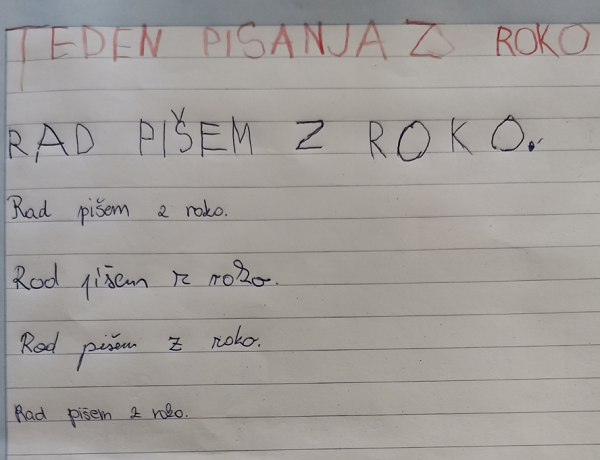 TEDEN PISANJA Z ROKO
RAD PIŠEM Z ROKO.
Rad pišem z roko.
Rad pišem z roko.
Rad pišem z roko.
Rad pišem z roko.